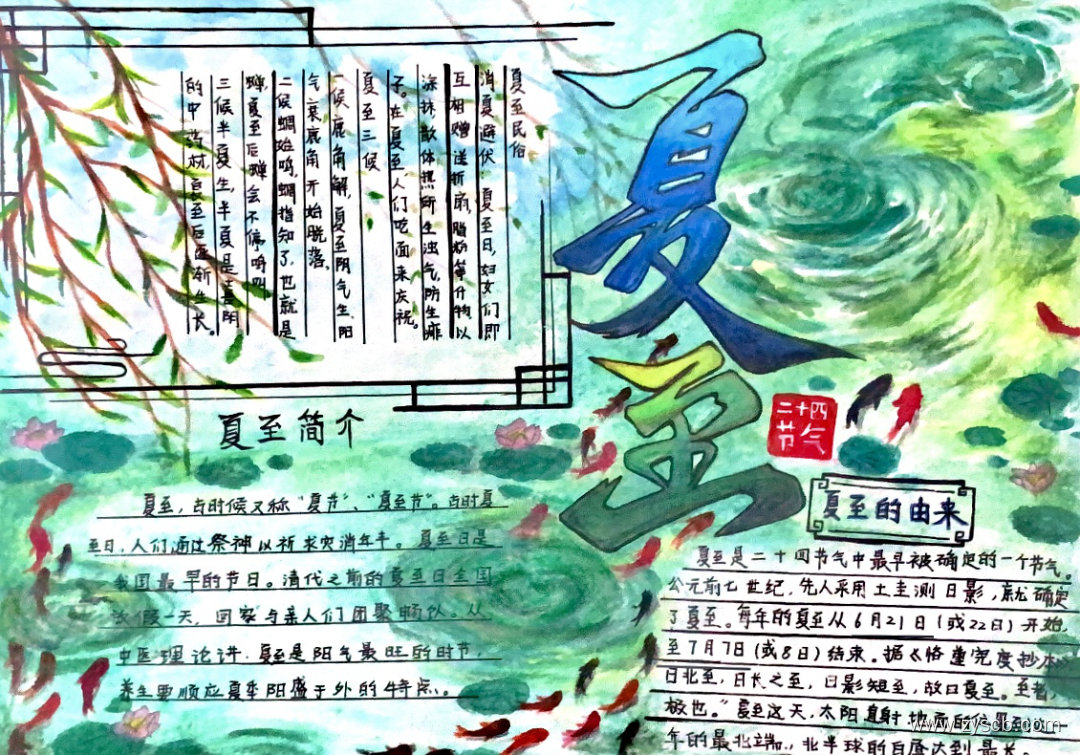 夏至
二十四
节气
夏至民俗
消夏避伏:夏至日,妇女们即
互相赠送折扇,脂粉等什物以
涂抹散体热所生浊气,防生痱
子。在夏至人们吃面来庆祝。
夏至三候
一候鹿角解,夏至阴气生,阳
气衰鹿角开始脱落。
二候蜩始鸣,蜩指知了,也就是
蝉,夏至后蝉会不停鸣叫
三候半夏生,半夏是喜阴
的中药材,夏至后逐渐生长。
夏至简介
夏至,古时候又称“夏节”、“夏至节”。古时夏
至日,人们通过祭神以祈求灾消年丰。夏至日是
我国最早的节日。清代之前的夏至日全国
放假一天,回家与亲人们团聚畅饮。从
中医理论讲,夏至是阳气最旺的时节,
养生要顺应夏季阳盛于外的特点。
夏至的由来
夏至是二十四节气中最早被确定的一个节气。
公元前七世纪,先人采用土圭测日影,就确定
了夏至。每年的夏至从6月21日(或22日)开始,
至7月7日(或8日)结束。据《恪遵宪度抄本》
日北至,日长之至,日影短至,故曰夏至。至者,
极也。”夏至这天,太阳直射地面的位置
年的最北端,北半球的白昼达到最长
www.zyscb.com